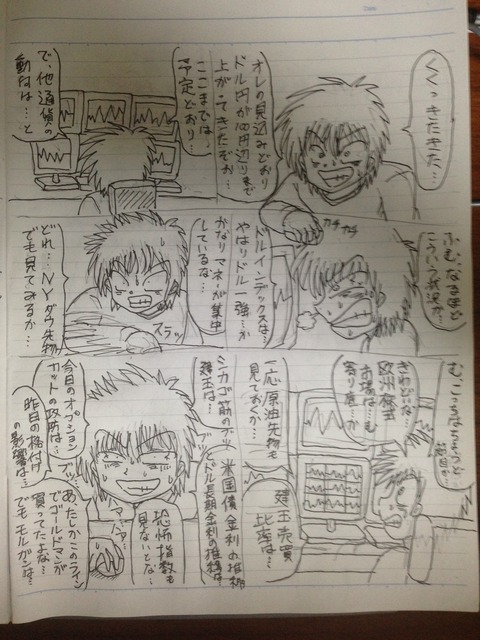 くくっきたきた…
オレの見込みどおり
ドル円が100円辺りまで
上がってきたぞお…
ここまでは、
予定どおり…
で、他通貨の
動向は…と
カチ
カチ
ふむ、なるほど
こういう状況か…
ドルインデックスは…
やはりドル一強…か
かなりマネーが集中
しているな…
どれ…NYダウ先物
でも見てみるか…
スラッ
むっここちはちょっと…
節目か
きわどいな…
欧州株式
市場は…も
寄り底…か
一応原油先物も
見ておくか…
建玉売買
比率は…
シカゴ筋の
建玉は…
ブツ
米国債金利の推移
ドル長期金利の推移は
恐怖指数も
見ないとな…
今日のオプション
カットの攻防は…
昨日の格付け
の影響は…
ブツ…
あ、たしかこのライン
でゴールドマンが
買ってたよな…
でもモルガンは…